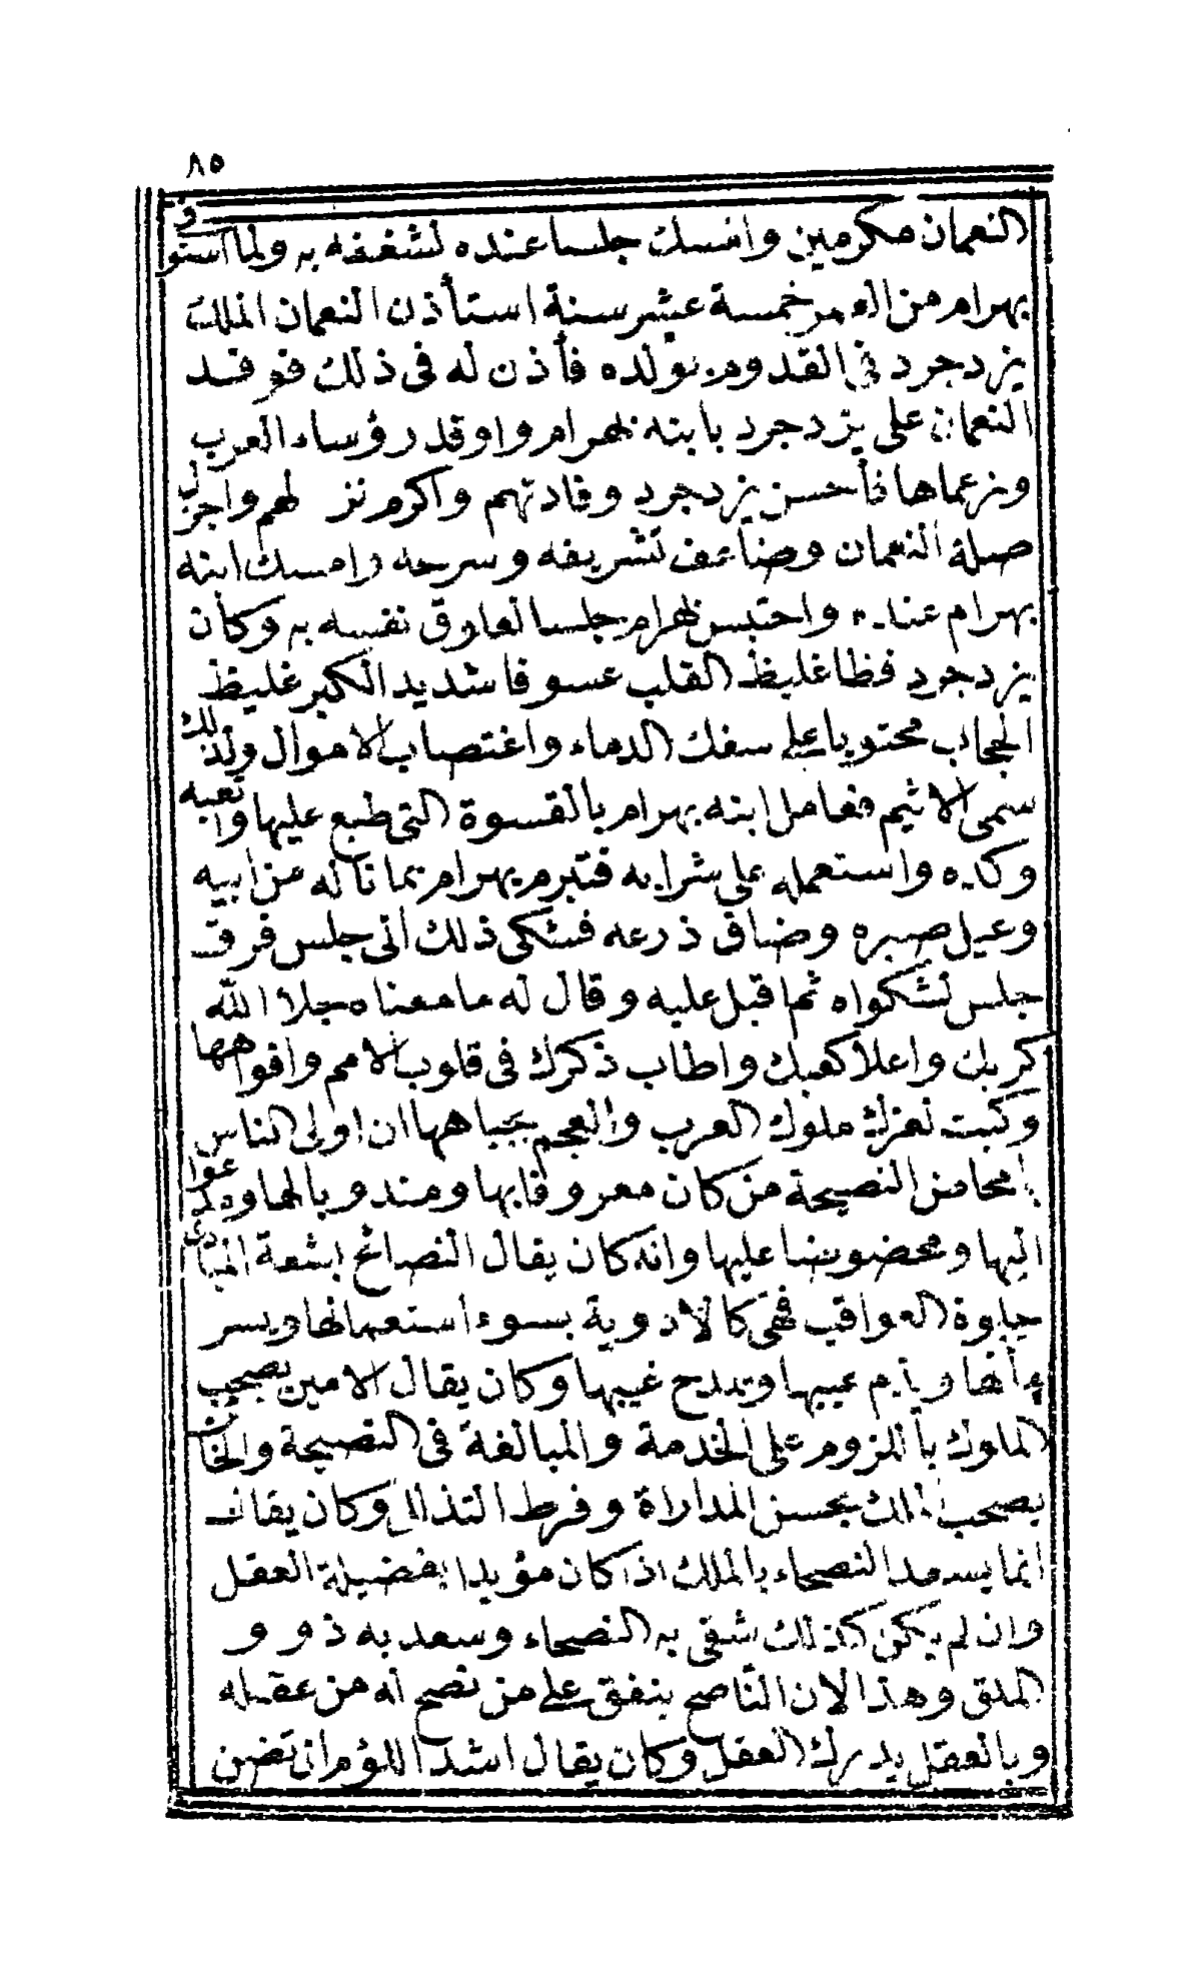 ٨٥
النعمان مكرمين وامسك جلسا عنده لشغفه به ولما استوفى
بهرام من العمر خمسة عشر سنة استأذن النعمان الملك
يزدجرد فى القدوم بولده فأذن له فى ذلك فوفد
النعمان على يزدجرد بابنه بهرام واوفد رؤساء العرب
وزعماها فأحسن يزدجرد وفادتهم واكرم نزلهم واجزل
صلة النعمان وضاعف تشريفه وسرحه وامسك ابنه
بهرام عنده واحتبس بهرام جلسا لعلوق نفسه به وكان
يزدجرد فظا غليظ القلب عسوفا شديد الكبر غليظ
الحجاب محتويا على سفك الدماء واغتصاب الاموال ولذلك
سمى الاثيم فعامل ابنه بهرام بالقسوة التى طبع عليها واتعبه
وكده واستعمله على شرابه فتبرم بهرام بما ناله من ابيه
وعيل صبره وضاق ذرعه فشكى ذلك الى جلس فرق
جلس لشكواه ثم اقبل عليه وقال له ما معناه جلا الله
كربك واعلا كعبك واطاب ذكرك فى قلوب الامم وافواهها
وكبت لعزك ملوك العرب والعجم بجباهها ان اولى الناس
بامحاض النصيحة من كان معروفا بها ومندوبا لها ومدعوا
اليها ومحضوضا عليها وانه كان يقال النصائح بشعة المبادى
حلوة العواقب فهى كالادوية بسوء استعمالها ويسر
مآلها ويذم عيبها ويمدح غيبها وكان يقال الامين يصحب
الملوك بالمزوم على الخدمة والمبالغة فى النصيحة والخائن
يصحب الملك بحسن المداراة وفرط التذلل وكان يقال
انما يسعد النصحاء بالملك اذا كان مؤيدا بفضيلة العقل
وان لم يكن كذلك شقى به النصحاء وسعد به ذوو
الملق وهذا لان الناصح ينفق على من نصح له من عقله
وبالعقل يدرك العقل وكان يقال اشد اللؤم ان تضن